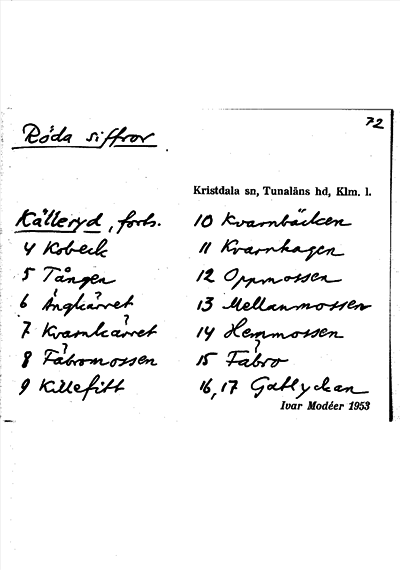 72
Röda siffror
Kristdala sn, Tunaläns hd, Klm. l.
Källeryd, forts.
4 Kobeck
5 Tången
6 Ängkärret
7 Kvarnkärret
8 Fäbromossen
9 Killefitt
10 Kvarnbäcken
11 Kvarnhagen
12 Oppmossen
13 Mellanmossen
14 Hemmossen
15 Fäbro
16, 17 Gatlyckan
Ivar Modéer 1953